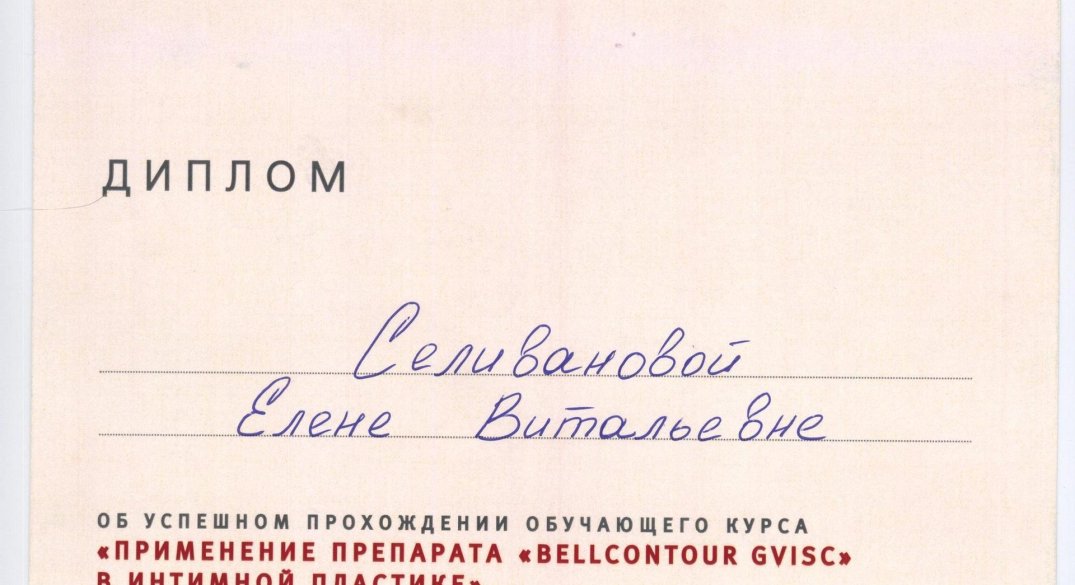 ДИПЛОМ
Селивановой
Елене Витальевне
ОБ УСПЕШНОМ ПРОХОЖДЕНИИ ОБУЧАЮЩЕГО КУРСА
«ПРИМЕНЕНИЕ ПРЕПАРАТА «BELLCONTOUR GVISC»
В ИНТИМНОЙ ПЛАСТИКЕ»